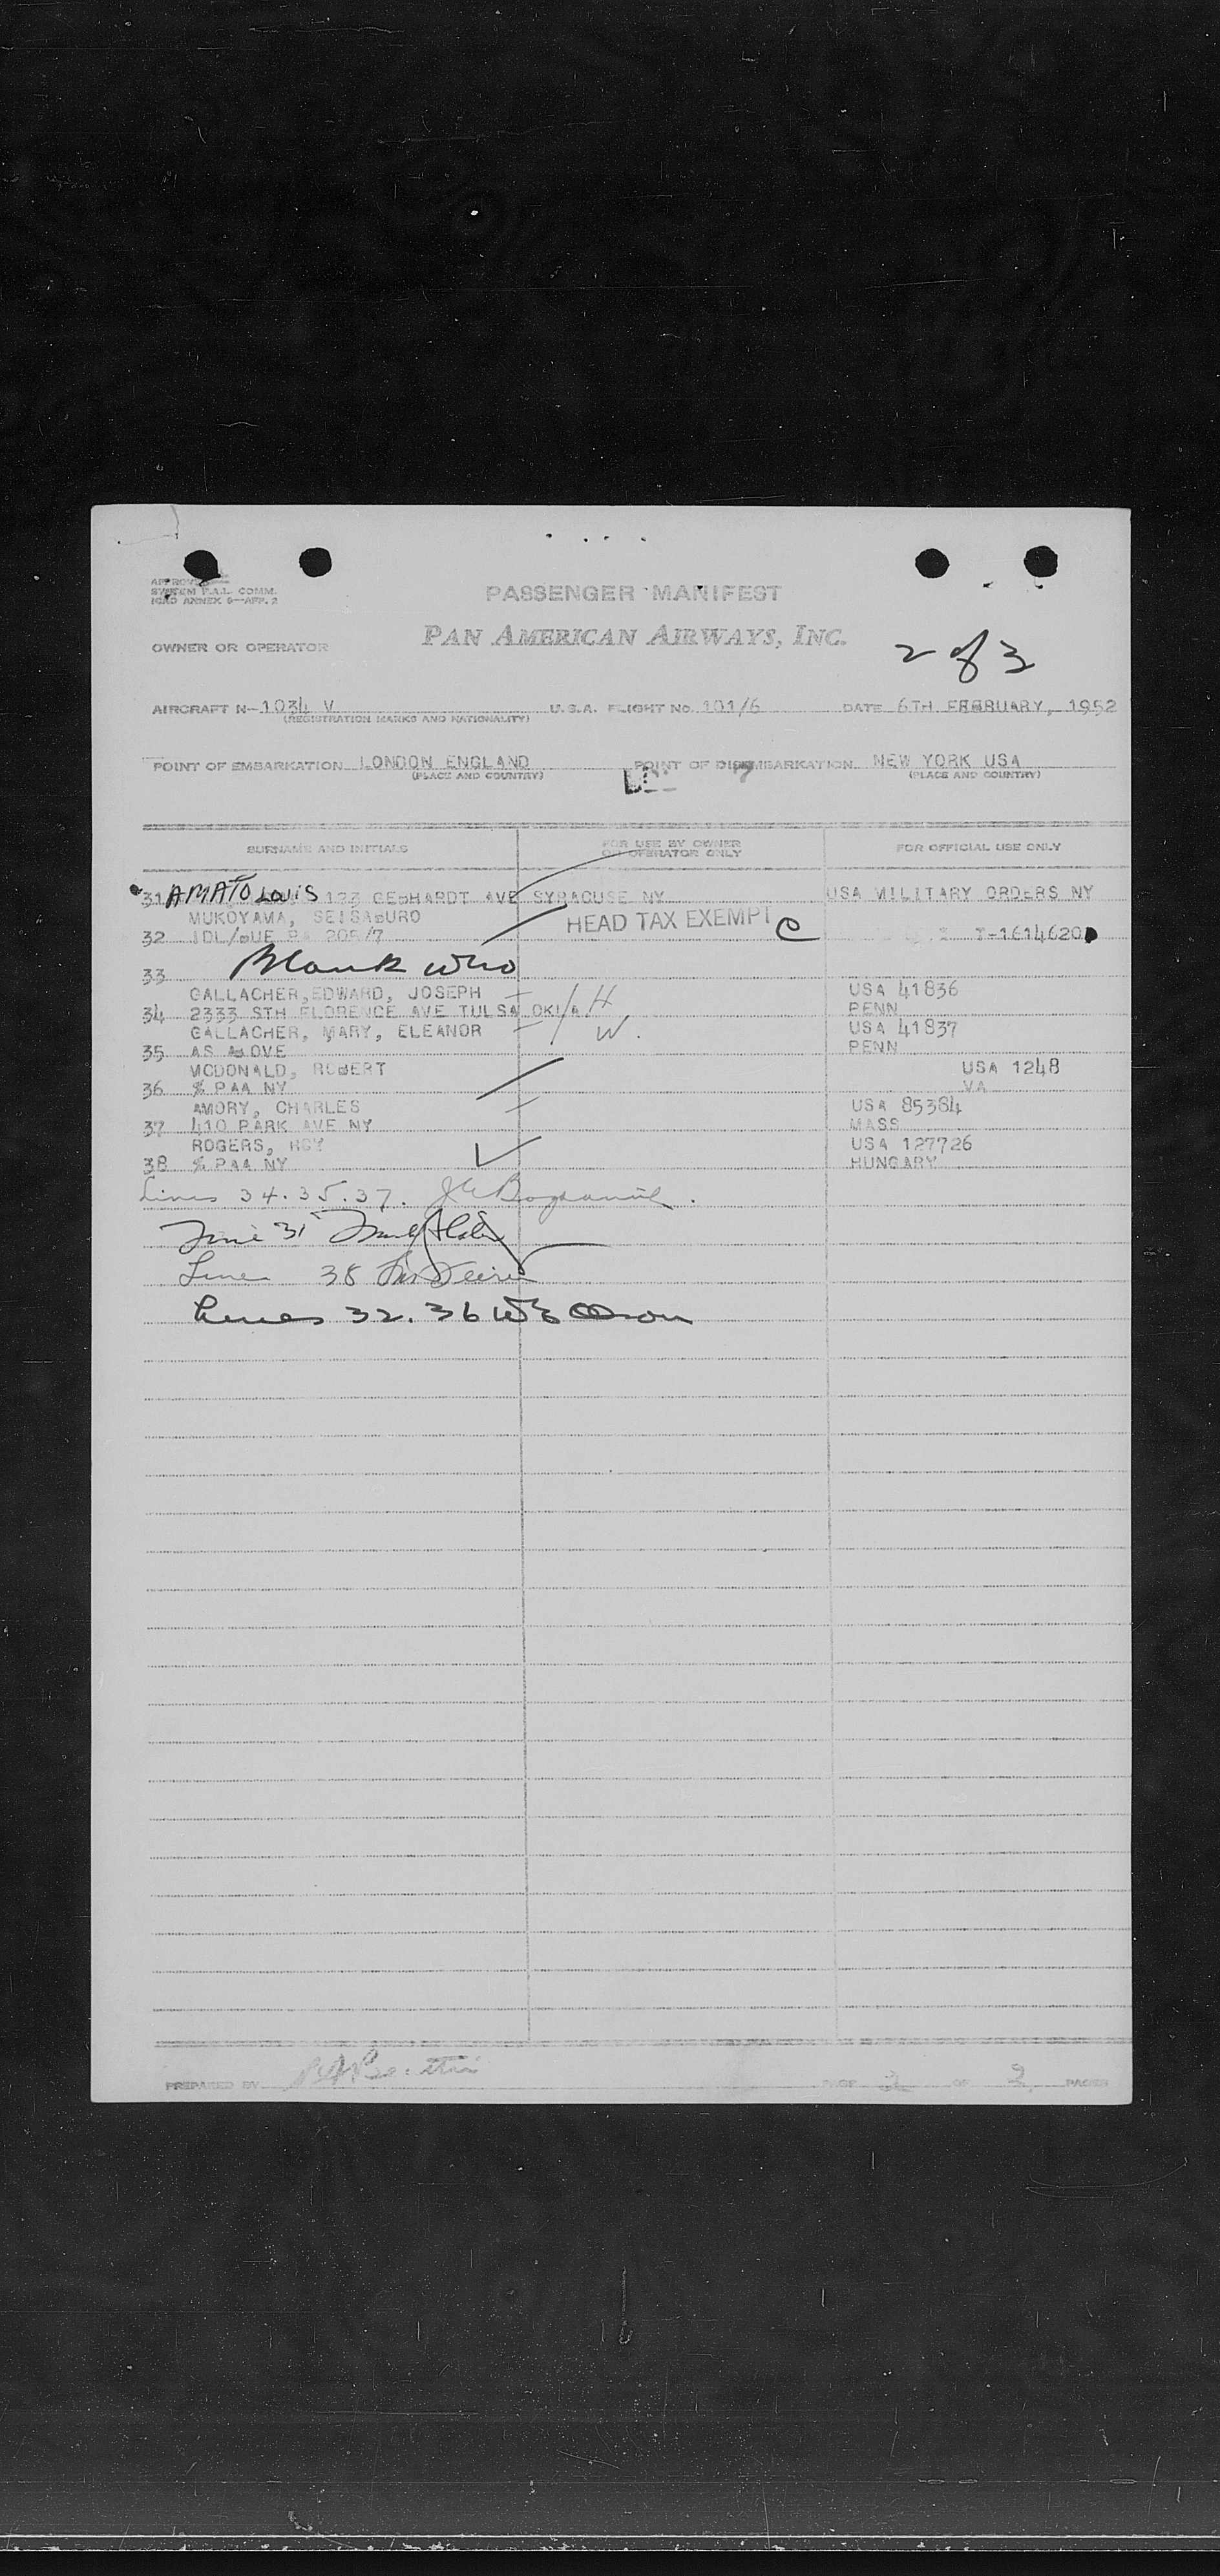 APPROVED
SYSTEM P.A.L. COMM.
ICAO ANNEX 9—APP. 2
PASSENGER MANIFEST
PAN AMERICAN AIRWAYS, INC.
OWNER OR OPERATOR
2 of 3
AIRCRAFT N-1034 V U.S.A. FLIGHT No. 101/6 DATE 6TH FEBRUARY, 1952
(REGISTRATION MARKS AND NATIONALITY)
POINT OF EMBARKATION LONDON ENGLAND POINT OF DISEMBARKATION NEW YORK USA
(PLACE AND COUNTRY) (PLACE AND COUNTRY)
7
SURNAME AND INITIALS FOR USE BY OWNER OR OPERATOR ONLY FOR OFFICIAL USE ONLY
31 AMATO Louis 123 GEBHARDT AVE SYRACUSE NY USA MILITARY ORDERS NY
MUKOYAMA, SEISABURO HEAD TAX EXEMPT C
32 IDL/DUE PA 205/7 T-1614620
33 Blank
GALLACHER, EDWARD, JOSEPH H USA 41836
34 2333 STH FLORENCE AVE TULSA OKLA PENN
GALLACHER, MARY, ELEANOR W. USA 41837
35 AS ABOVE PENN
MCDONALD, ROBERT USA 1248
36 % PAA NY VA
AMORY, CHARLES USA 85384
37 410 PARK AVE NY MASS
ROGERS, ROY USA 127726
38 % PAA NY HUNGARY
Lines 34.35.37.
Line 31
Line 38
Lines 32.36 Olson
PREPARED BY PAGE 2 OF 2 PAGES